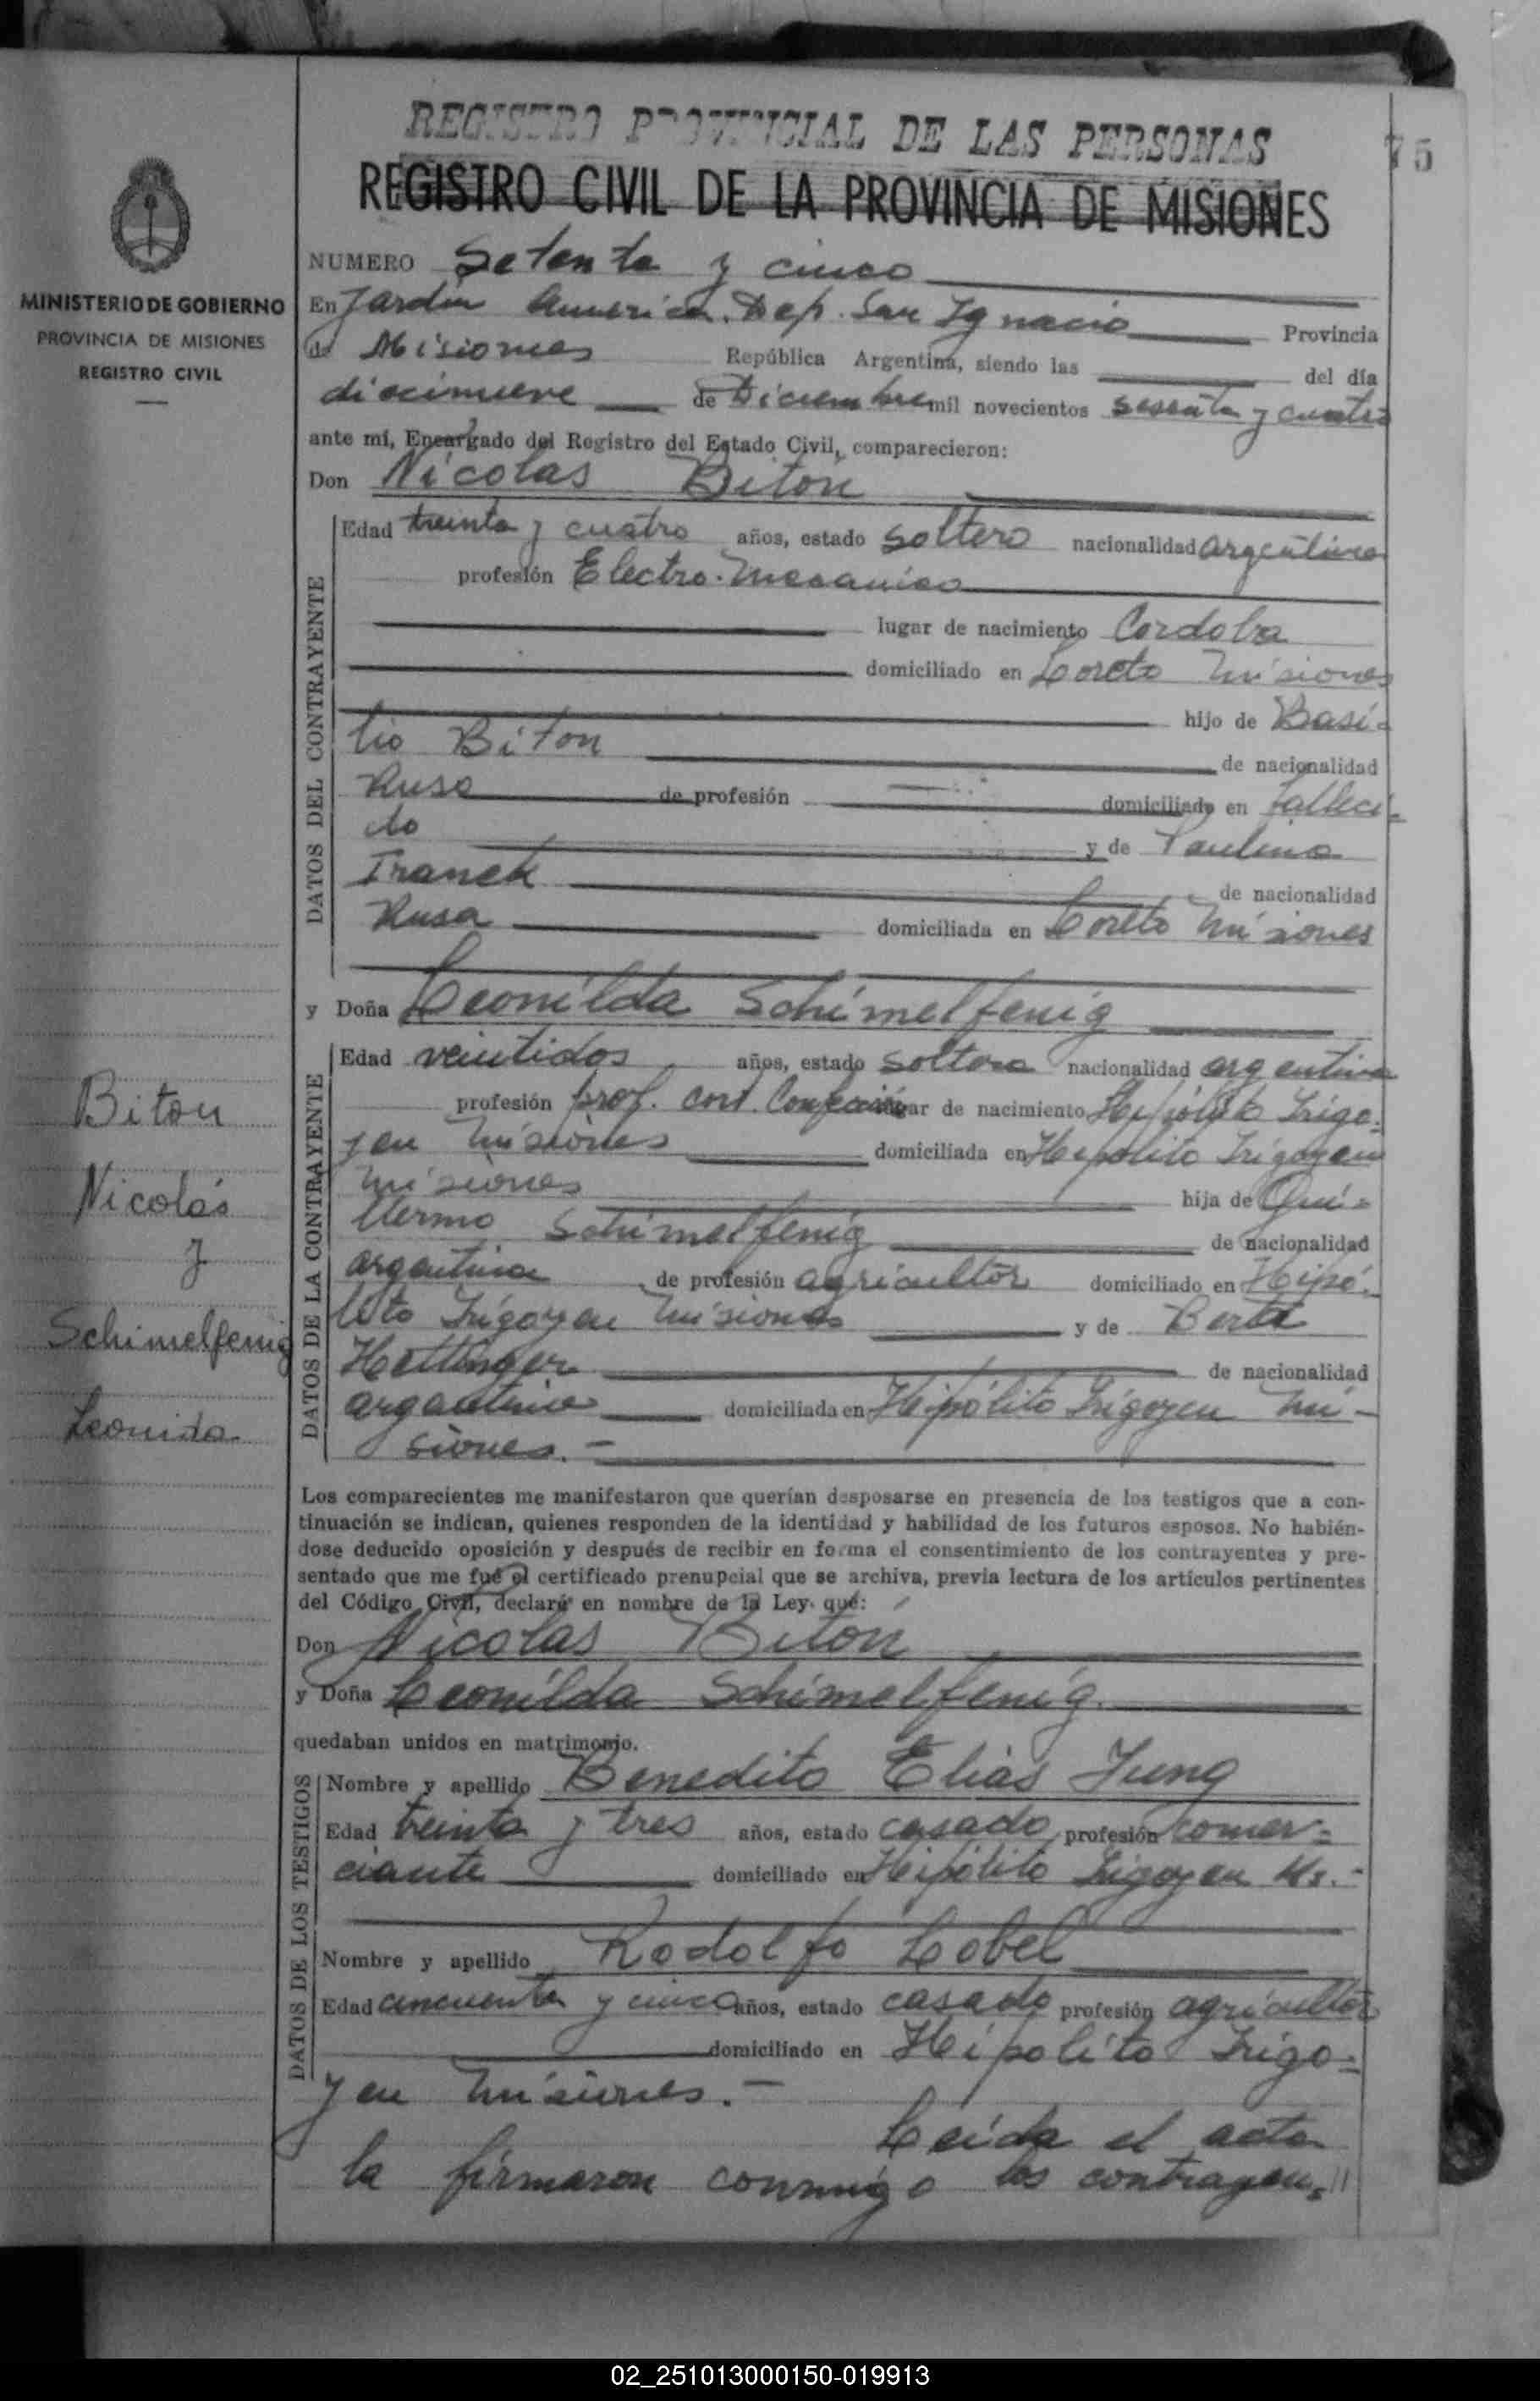 REGISTRO PROVINCIAL DE LAS PERSONAS
75
REGISTRO CIVIL DE LA PROVINCIA DE MISIONES
MINISTERIO DE GOBIERNO
PROVINCIA DE MISIONES
REGISTRO CIVIL
NUMERO Setenta y cinco
En Jardin America. Dep. San Ignacio Provincia
de Misiones República Argentina, siendo las del día
diecinueve de Diciembre mil novecientos sesenta y cuatro
ante mí, Encargado del Registro del Estado Civil, comparecieron:
Don Nicolas Biton
DATOS DEL CONTRAYENTE
Edad treinta y cuatro años, estado soltero nacionalidad argentina
profesión Electro-mecanico
lugar de nacimiento Cordoba
domiciliado en Loreto Misiones
hijo de Basi-
lio Biton de nacionalidad
Rusa de profesión domiciliado en falleci-
do y de Paulina
Iranek de nacionalidad
Rusa domiciliada en Loreto Misiones
y Doña Leonilda Schimelfenig
DATOS DE LA CONTRAYENTE
Edad veintidos años, estado soltera nacionalidad argentina
profesión prof. cort. Confección lugar de nacimiento Hipólito Irigo-
yen Misiones domiciliada en Hipolito Irigoyen
Misiones hija de Gui-
llermo Schimelfenig de nacionalidad
argentina de profesión agricultor domiciliado en Hipó-
lito Irigoyen Misiones y de Berta
Hettinger de nacionalidad
argentina domiciliada en Hipólito Irigoyen Mi-
siones.-
Biton
Nicolás
y
Schimelfenig
Leonida
Los comparecientes me manifestaron que querían desposarse en presencia de los testigos que a con-
tinuación se indican, quienes responden de la identidad y habilidad de los futuros esposos. No habién-
dose deducido oposición y después de recibir en forma el consentimiento de los contrayentes y pre-
sentado que me fué el certificado prenupcial que se archiva, previa lectura de los artículos pertinentes
del Código Civil, declaré en nombre de la Ley. qué:
Don Nicolas Biton
y Doña Leonilda Schimelfenig.
quedaban unidos en matrimonio.
DATOS DE LOS TESTIGOS
Nombre y apellido Benedito Elias Jung
Edad treinta y tres años, estado casado profesión comer-
ciante domiciliado en Hipólito Irigoyen Ms.-
Nombre y apellido Rodolfo Lobel
Edad cincuenta y cinco años, estado casado profesión agricultor
domiciliado en Hipolito Irigo-
yen Misiones.-
Leida el acta
la firmaron conmigo los contrayen-//
02_251013000150-019913